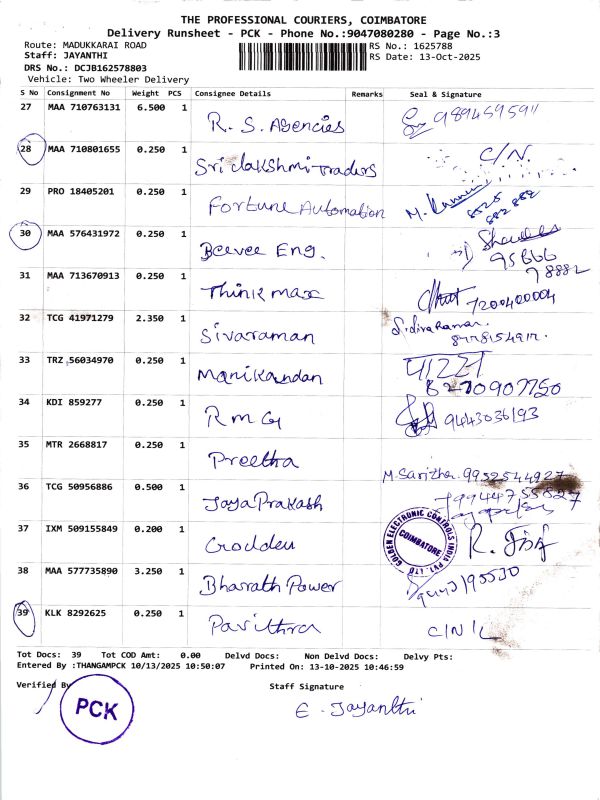 THE PROFESSIONAL COURIERS, COIMBATORE
Delivery Runsheet - PCK - Phone No.:9047080280 - Page No.:3
Route: MADUKKARAI ROAD
RS No.: 1625788
Staff: JAYANTHI
RS Date: 13-Oct-2025
DRS No.: DCJB162578803
Vehicle: Two Wheeler Delivery
S No Consignment No Weight PCS Consignee Details Remarks Seal & Signature
27 MAA 710763131 6.500 1 R. S. Agencies 9894595911
28 MAA 710801655 0.250 1 Sri Lakshmi Traders C/N.
29 PRO 18405201 0.250 1 Fortune Automation M.
30 MAA 576431972 0.250 1 Beevee Eng.
95666
78882
31 MAA 713670913 0.250 1 Think max 7200400004
32 TCG 41971279 2.350 1 Sivaraman
33 TRZ 56034970 0.250 1 Manikandan
8270907750
34 KDI 859277 0.250 1 R m G 9443036193
35 MTR 2668817 0.250 1 Preetha M. Saritha. 9952544927
36 TCG 50956886 0.500 1 Jaya Prakash
37 IXM 509155849 0.200 1 Grodden GOLDEN ELECTRONIC CONTROLS INDIA PVT. LTD COIMBATORE R.
38 MAA 577735890 3.250 1 Bharath Power
39 KLK 8292625 0.250 1 Pavithra C/N/L
Tot Docs: 39 Tot COD Amt: 0.00 Delvd Docs: Non Delvd Docs: Delvy Pts:
Entered By :THANGAMPCK 10/13/2025 10:50:07 Printed On: 13-10-2025 10:46:59
Verified By
Staff Signature
PCK
E. Jayanthi